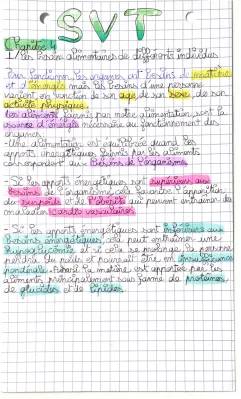 SVT
Chapitre 4
1/ Les besoins alimentaires de différents individus
Pour fonctionner, les organes ont besoins de matière
et d'énergie mais les besoins d'une personne
varient en fonction de son âge, de son sexe, de son
activité physique.
Les aliments fournis par notre alimentation sont la
source d'énergie nécessaire au fonctionnement des
organes.
-Une alimentation est équilibrée quand les
apports énergétiques fournis par les aliments
correspondent aux besoins de l'organisme.
- Si les apports énergétiques sont supérieurs aux
besoins de l'organisme, cela favorise l'apparition
du surpoids et de l'obésité qui peuvent entrainer des
maladies cardio vasculaires.
- Si les apports énergétiques sont inférieurs aux
besoins énergétiques, cela peut entraîner une
hypoglycémie et si cela se prolonge la personne
perdra du poids et pourrait être en insuffisance
pondérale. la matière est apportée par les
aliments principalement sous forme de protéines,
de glucides et de lipides.